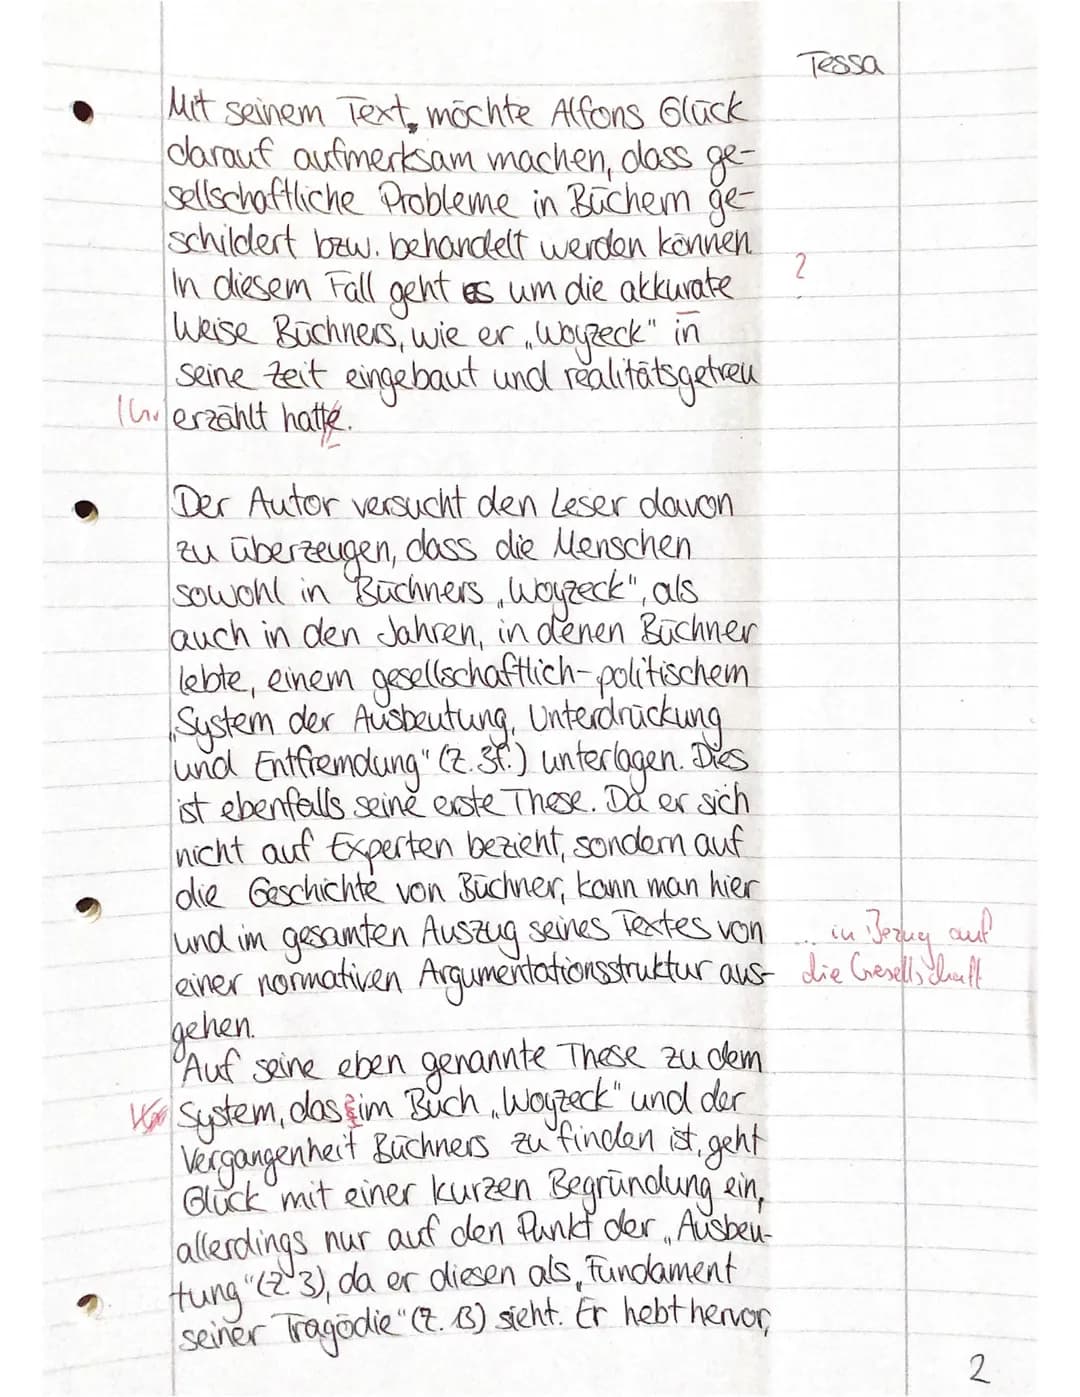 Tessa
Mit seinem Text, möchte Alfons Glück
darauf aufmerksam machen, dass ge-
sellschaftliche Probleme in Büchern ge-
schildert bzw. behandelt werden können.
?
In diesem Fall geht es um die akkurate
Weise Büchners, wie er „Woyzeck" in
seine Zeit eingebaut und realitätsgetreu
erzählt hatte.
Der Autor versucht den Leser davon
zu überzeugen, dass die Menschen
sowohl in Büchners „Woyzeck", als
auch in den Jahren, in denen Büchner
lebte, einem gesellschaftlich-politischem
„System der Ausbeutung, Unterdrückung
und Entfremdung" (Z. 3f.) unterlagen. Dies
ist ebenfalls seine erste These. Da er sich
nicht auf Experten bezieht, sondern auf
die Geschichte von Büchner, kann man hier
und im gesamten Auszug seines Textes von
... in Bezug auf
einer normativen Argumentationsstruktur aus-
die Gesellschaft
gehen.
Auf seine eben genannte These zu dem
System, das im Buch „Woyzeck" und der
Vergangenheit Büchners zu finden ist, geht
Glück mit einer kurzen Begründung ein,
allerdings nur auf den Punkt der „Ausbeu-
tung" (Z. 3), da er diesen als „Fundament
seiner Tragödie" (Z. 13) sieht. Er hebt hervor,
2